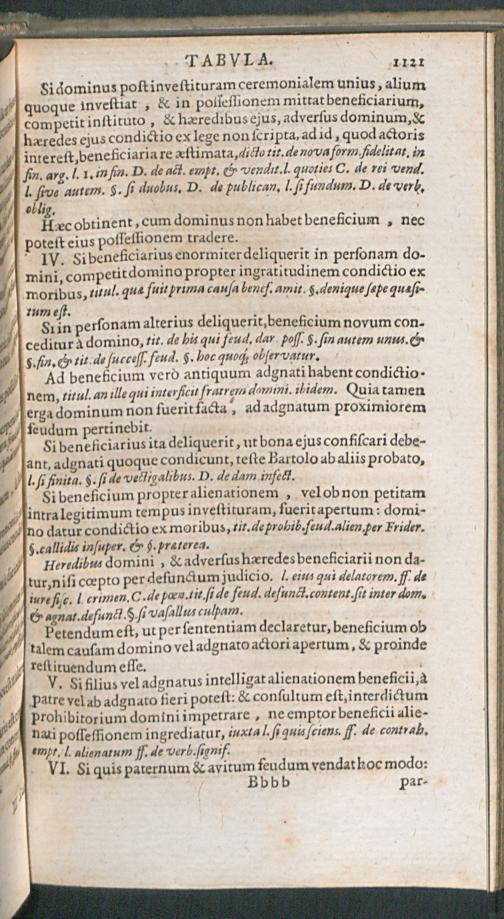 TABVLA. 1121
Si dominus post investituram ceremonialem unius, alium
quoque investiat , & in possessionem mittat beneficiarium,
competit instituto , & hæredibus ejus, adversus dominum, &
hæredes ejus condictio ex lege non scripta, ad id, quod actoris
interest, beneficiaria re æstimata, dicto tit. de nova form. fidelitat. in
fin. arg. l. 1. in fin. D. de act. empt. & vendit. l. quoties C. de rei vend.
l. sive autem. §. si duobus. D. de publican. l. si fundum. D. de verb.
oblig.
Hæc obtinent, cum dominus non habet beneficium , nec
potest eius possessionem tradere.
IV. Si beneficiarius enormiter deliquerit in personam do-
mini, competit domino propter ingratitudinem condictio ex
moribus, titul. quæ fuit prima causa benef. amit. §. denique sæpe quæsi-
tum est.
Si in personam alterius deliquerit, beneficium novum con-
ceditur à domino, tit. de his qui feud. dar. poss. §. sin autem unus. &
§. fin. & tit. de success. feud. §. hoc quoq; observatur.
Ad beneficium verò antiquum adgnati habent condictio-
nem, titul. an ille qui interficit fratrem domini. ibidem. Quia tamen
erga dominum non fuerit facta , ad adgnatum proximiorem
feudum pertinebit.
Si beneficiarius ita deliquerit, ut bona ejus confiscari debe-
ant, adgnati quoque condicunt, teste Bartolo ab aliis probato,
l. si finita. §. si de vectigalibus. D. de dam. infect.
Si beneficium propter alienationem , vel ob non petitam
intra legitimum tempus investituram, fuerit apertum : domi-
no datur condictio ex moribus, tit. de prohib. feud. alien. per Frider.
§. callidis insuper. & §. præterea.
Heredibus domini , & adversus hæredes beneficiarii non da-
tur, nisi cœpto per defunctum judicio. l. eius qui delatorem. ff. de
iure fisc. l. crimen. C. de pœn. tit. si de feud. defunct. content. sit inter dom.
& agnat. defunct. §. si vasallus culpam.
Petendum est, ut per sententiam declaretur, beneficium ob
talem causam domino vel adgnato actori apertum, & proinde
restituendum esse.
V. Si filius vel adgnatus intelligat alienationem beneficii, à
patre vel ab adgnato fieri potest: & consultum est, interdictum
prohibitorium domini impetrare , ne emptor beneficii alie-
nati possessionem ingrediatur, iuxta l. si quis sciens. ff. de contrah.
empt. l. alienatum ff. de verb. signif.
VI. Si quis paternum & avitum feudum vendat hoc modo:
Bbbb par-